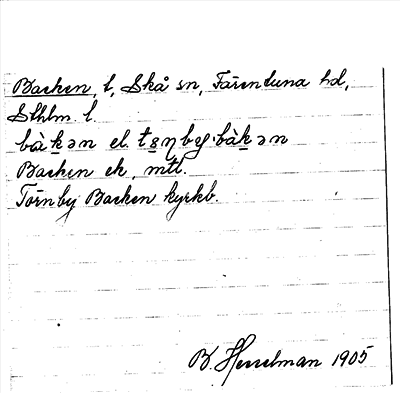 Backen, t, Skå sn, Färentuna hd,
Sthlm. l.
bàkən el.
Backen ek, mtl.
Törnby Backen kyrkb.
B. Hesselman 1905